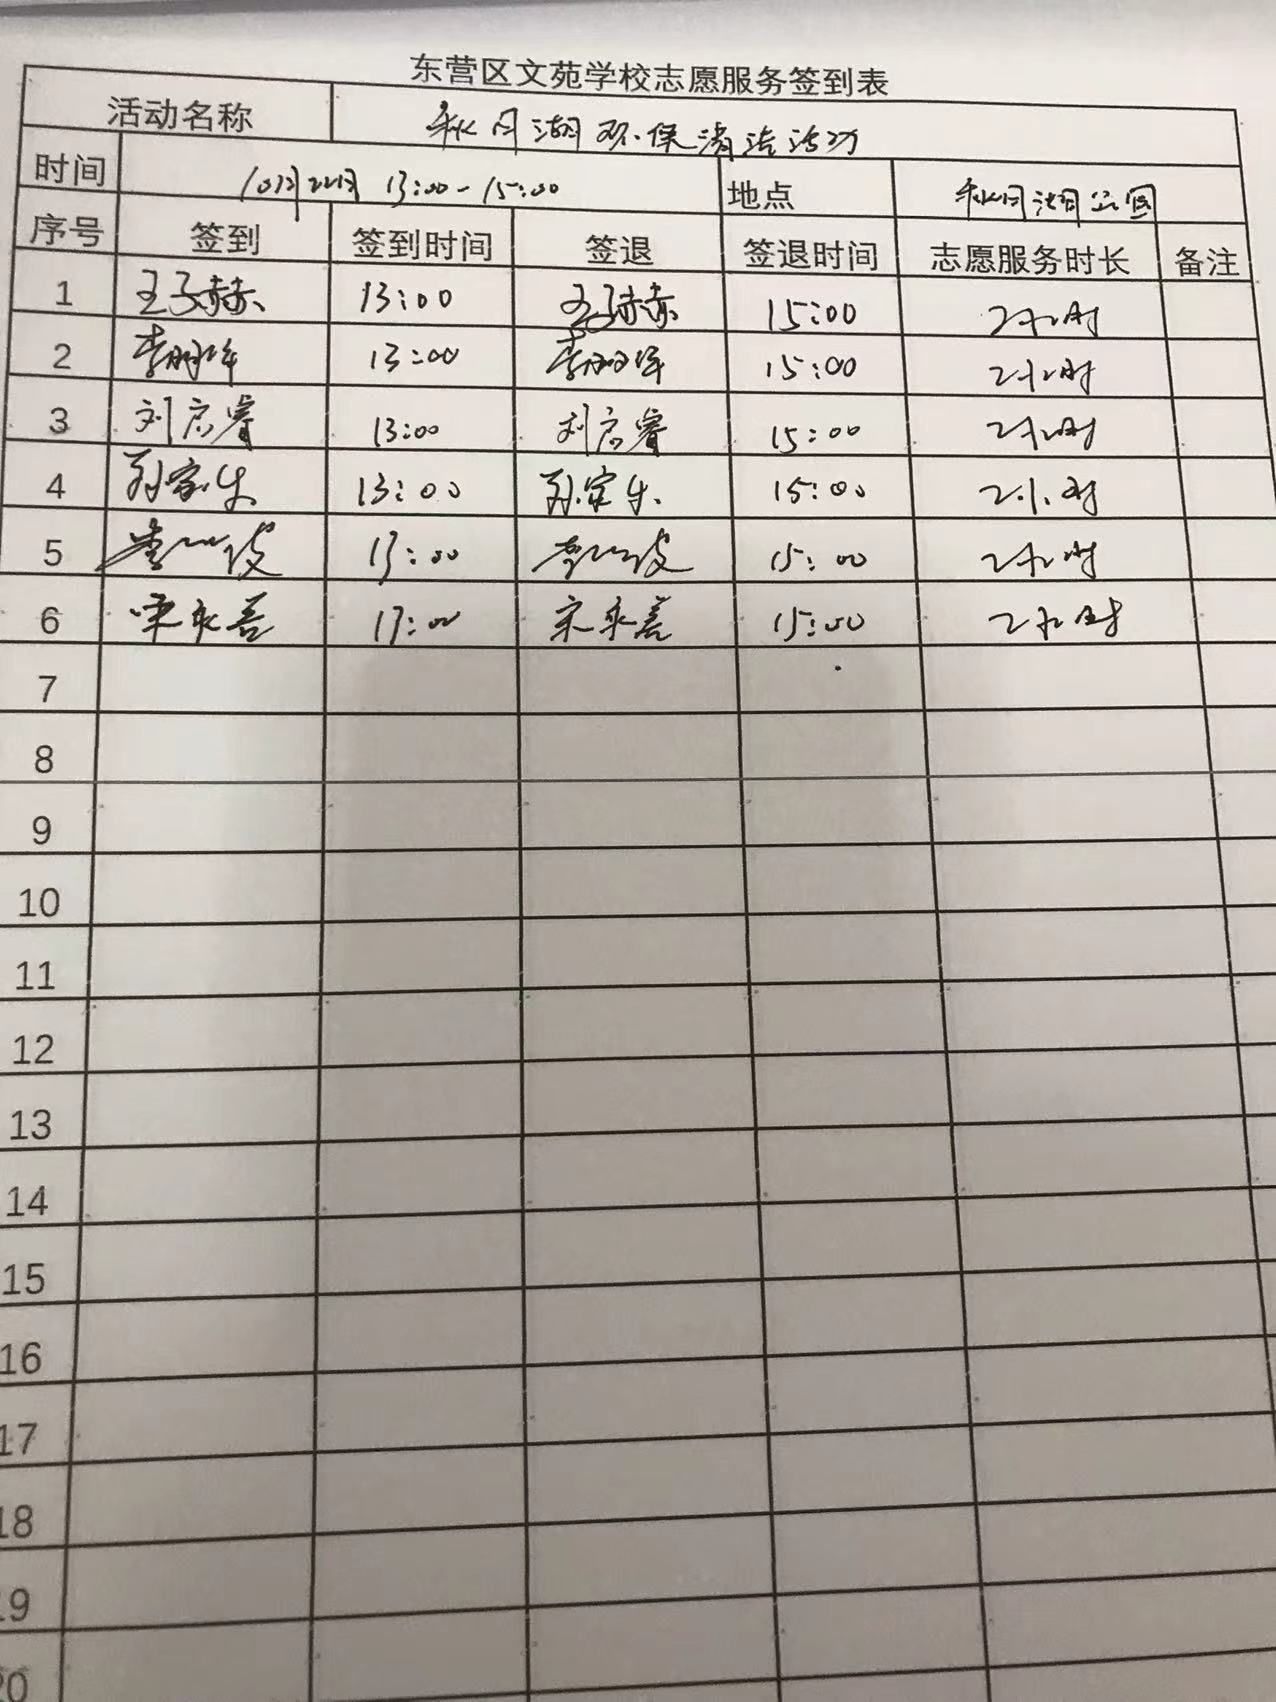 东营区文苑学校志愿服务签到表
活动名称 秋月湖环保清洁活动
时间 10月22日 13:00-15:00 地点 秋月湖公园
序号 签到 签到时间 签退 签退时间 志愿服务时长 备注
1 王子赫 13:00 王子赫 15:00 2小时
2 13:00 15:00 2小时
3 刘启睿 13:00 刘启睿 15:00 2小时
4 孙家乐 13:00 孙家乐 15:00 2小时
5 13:00 15:00 2小时
6 宋承善 13:00 宋承善 15:00 2小时
7
8
9
10
11
12
13
14
15
16
17
18
19
20